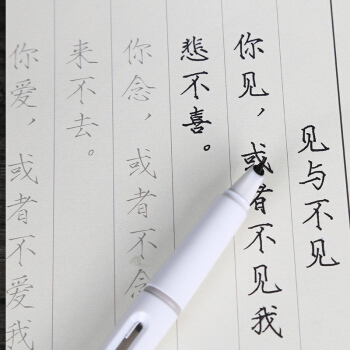 见与不见
你见，或者不见我
悲不喜。
你念，或者不念
来不去。
你爱，或者不爱我